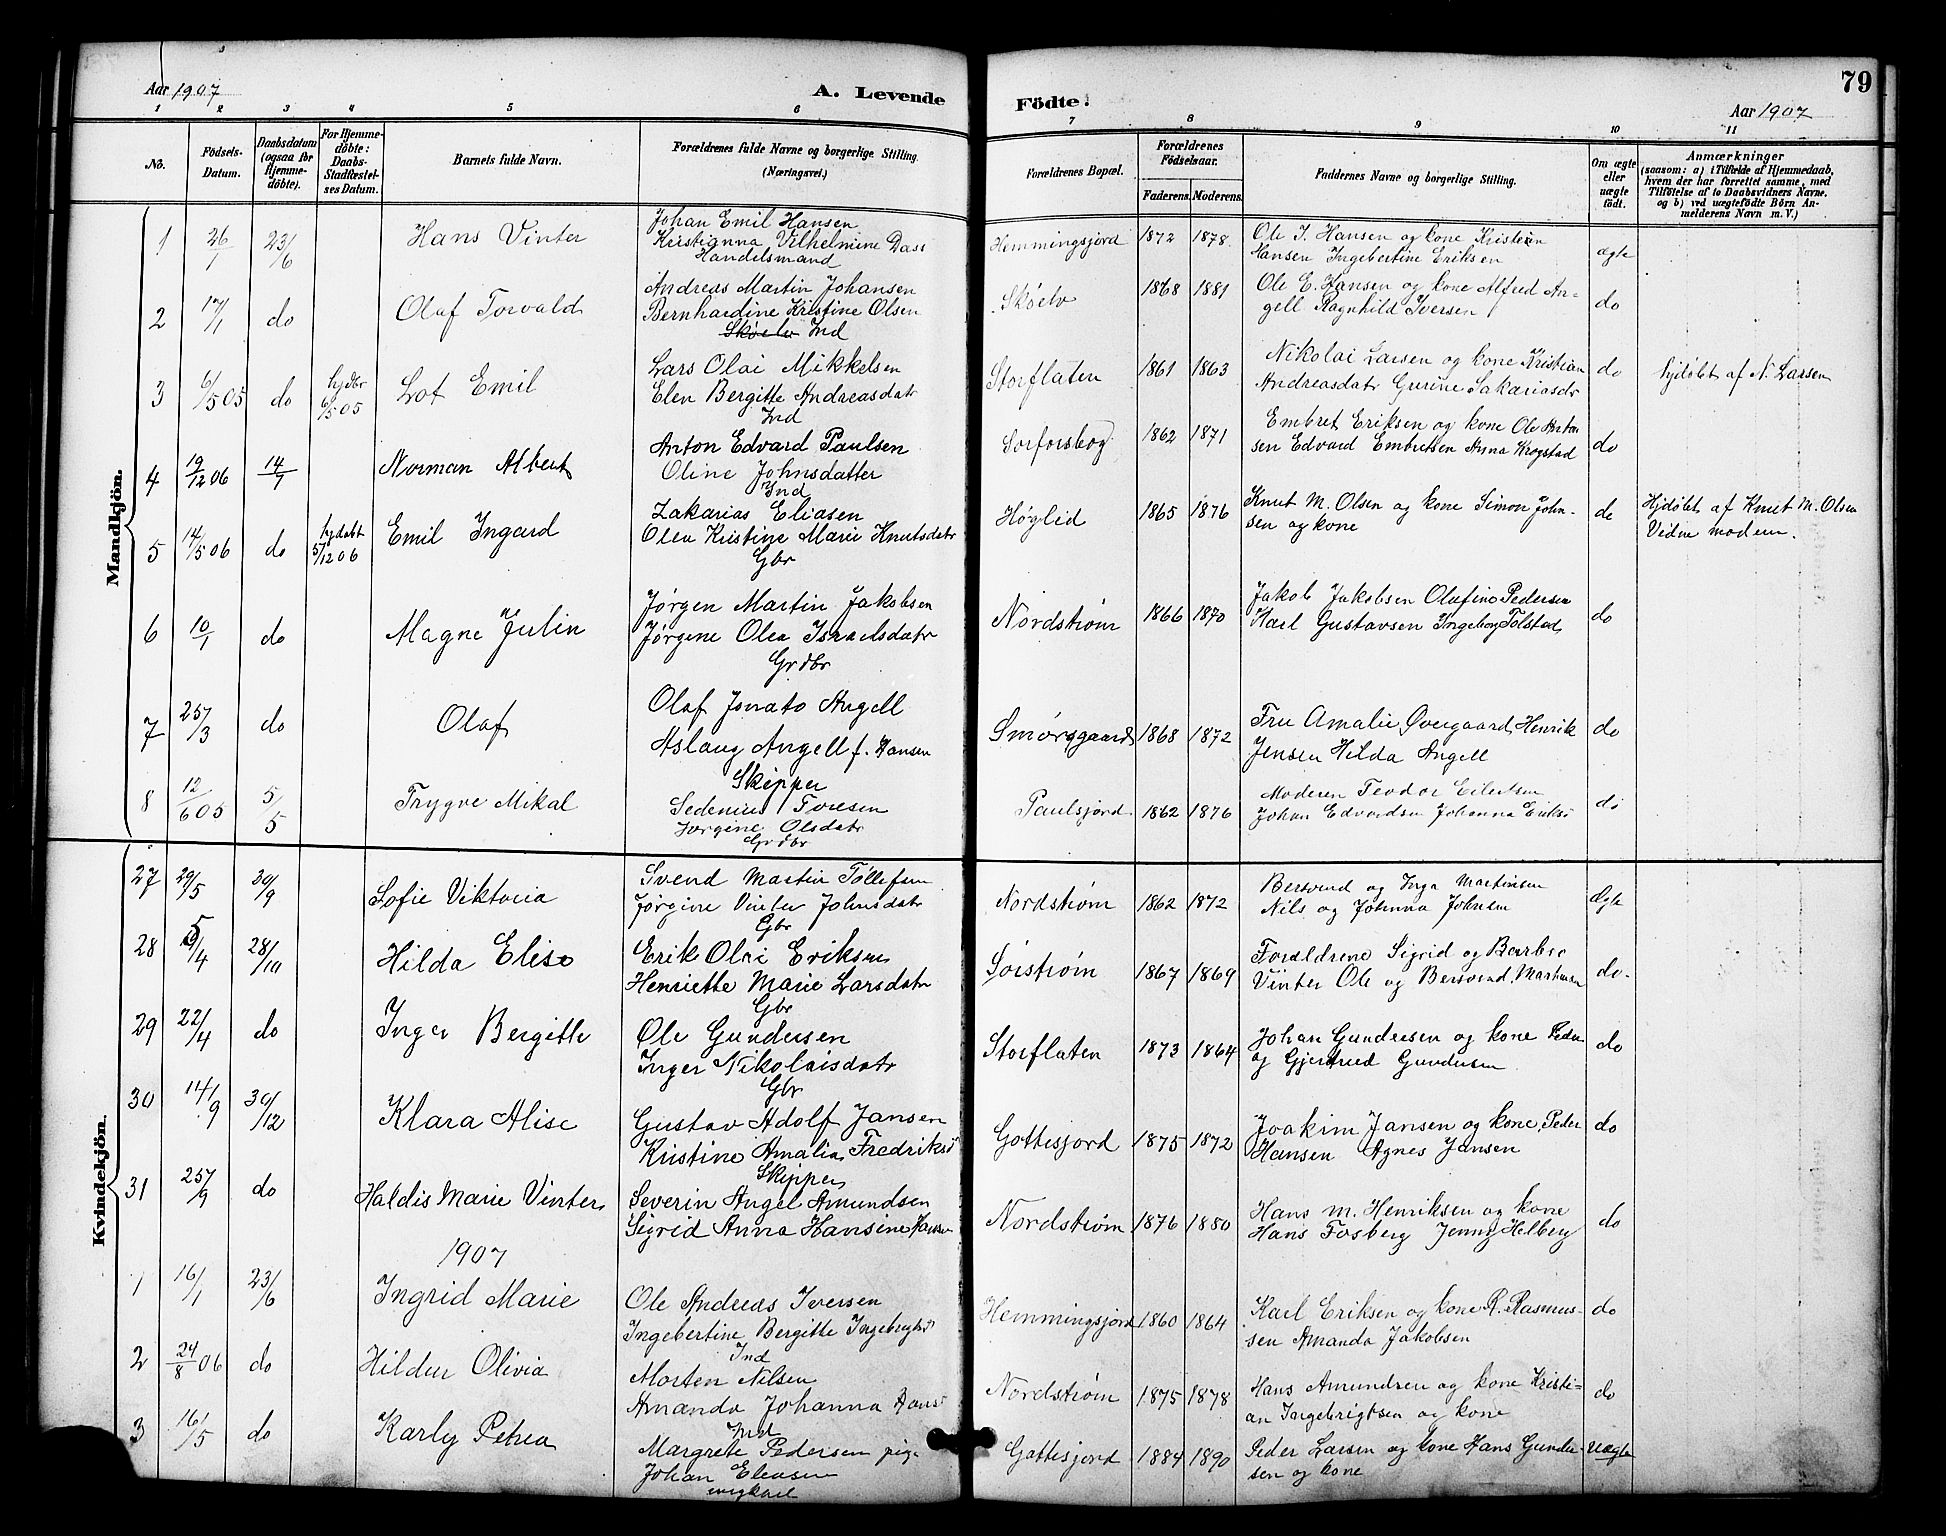 Aar 1907
A. Levende
Födte.
79
Aar 1907
1 2 3 4 5 6 7 8 9 10 11
No.
Födsels-Datum.
Daabsdatum (ogsaa for Hjemmedöbte).
For Hjemmedöbte: Daabs-Stadfæstelses Datum.
Barnets fulde Navn.
Forældrenes fulde Navne og borgerlige Stilling.
(Næringsvei.)
Forældrenes Bopæl.
Forældrenes Födselsaar.
Faderens. Moderens.
Faddernes Navne og borgerlige Stilling.
Om ægte eller uægte födt.
Anmærkninger
(saasom: a) i Tilfælde af Hjemmedaab, hvem der har forrettet samme, med Tilföielse af to Daabsvidners Navne, og b) ved uægtefödte Börn Anmelderens Navn m.V.)
Mandkjön.
1 26/1 23/6 Hans Vinter
Johan Emil Hansen
Kristianna Vilhelmine Dass
Handelsmand
Hemmingsjord 1872 1878
Ole J. Hansen og kone Kristian
Hansen Ingebertine Eriksen
ægte
2 17/1 do Olaf Torvald
Andreas Martin Johansen
Bernhardine Kristine Olsen
Skøelv Ind
Skøelv 1868 1881
Ole E. Hansen og kone Alfred An-
gell Ragnhild Iversen
do
3 6/5 05 do hjdbt 6/5 05 Lot Emil
Lars Olai Mikkelsen
Elen Bergitte Andreasdatr
Ind
Storflaten 1861 1863
Nikolai Larsen og kone Kristian
Andreasdatr Gurine Sakariasdr
do
hjdöbt af N. Larsen
4 19/12 06 14/7 Norman Albert
Anton Edvard Paulsen
Oline Johnsdatter
Ind
Sorforsbog 1862 1871
Embret Eriksen og kone Ole Anton
sen Edvard Embretsen Anna Krogstad
do
5 14/5 06 do hjdøbt 5/12 06 Emil Ingard
Zakarias Eliasen
Olea Kristine Marie Knutsdatr
Gbr
Høglid 1865 1876
Knut M. Olsen og kone Simon John-
sen og kone
do
Hjdøbt af Knut M. Olsen
Vidne moderen.
6 10/1 do Magne Julin
Jørgen Martin Jakobsen
Jørgine Olea Israelsdatr
Grdbr
Nordstrøm 1866 1870
Jakob Jakobsen Olafine Pedersen
Karl Gustavsen Ingeborg Tolstad
do
7 25/3 do Olaf
Olaf Jonato Angell
Aslaug Angell f. Hansen
Skipper
Smørsgaard 1868 1872
Fru Amalie Overgaard, Henrik
Jensen Hilda Angell
do
8 12/6 05 5/5 Trygve Mikal
Sedenius Toresen
Jorgine Olsdatr
Grdbr
Paulsjord 1862 1876
Moderen Teodor Eilertsen
Johan Edvardsen Johanna Eriks
do
Kvindekjön.
27 29/5 30/9 Sofie Viktoria
Svend Martin Tollefsen
Jørgine Vinter Johnsdatr
Gbr
Nordstrøm 1862 1872
Bersvend og Inga Martinsen
Nils og Johnna Johnsen
Ægte
28 5/4 28/10 Hilda Elise
Erik Olai Eriksen
Henriette Marie Larsdatr
Gbr
Sørstrøm 1867 1869
Forældrene Sigrid og Barbro
Vinter Ole og Bersvend Martinsen
do.
29 22/4 do Inger Bergitte
Ole Gundersen
Inger Nikolaisdatr
Gbr
Storflaten 1873 1864
Johan Gundersen og kone Peder
og Gjertrud Gundersen
do
30 14/9 30/12 Klara Alise
Gustav Adolf Jansen
Kristine Amalia Fredriks
Skipper
Gottesjord 1875 1872
Joakim Jansen og kone, Peder
Hansen Agnes Jansen
do
31 25/9 do Haldis Marie Vinter
Severin Angel Amundsen
Sigrid Anna Hansine Hansen
Nordstrøm 1876 1850
Hans M. Henriksen og kone
Hans Fosberg Jenny Helberg
do
1907
1 16/1 23/6 Ingrid Marie
Ole Andreas Iversen
Ingebertine Bergitte Ingebrigts
Ind
Hemmingsjord 1860 1864
Karl Eriksen og kone R. Rasmus-
sen Amanda Jakobsen
do
2 24/8 06 do Hildur Olivia
Morten Nilsen
Amanda Johanna Hans
Ind
Nordstrøm 1875 1878
Hans Amundsen og kone Kristi-
an Ingebrigtsen og kone
do
3 16/5 do Karly Petrea
Margrete Pedersen pige
Johan Eleasen
ungkarl
Gottesjord 1884 1890
Peder Larsen og kone Hans Gunder-
sen og kone
uægte